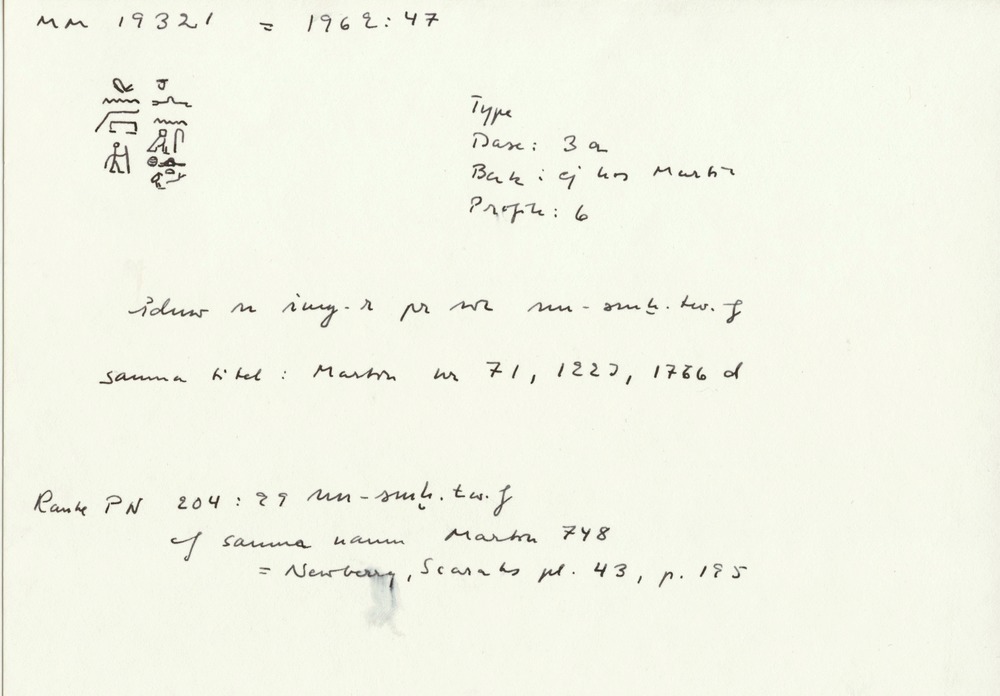 MM 19321 = 1962:47
Type
Base: 3 a
Back: ej hos Martin
Profile: 6
idnw n imy-r pr wr nn-smḫ.tw.f
samma titel: Martin nr 71, 1223, 1766 d
Ranke PN 204:29 nn-smḫ.tw.f
cf samma namn Martin 748
= Newberry, Scarabs pl. 43, p. 195